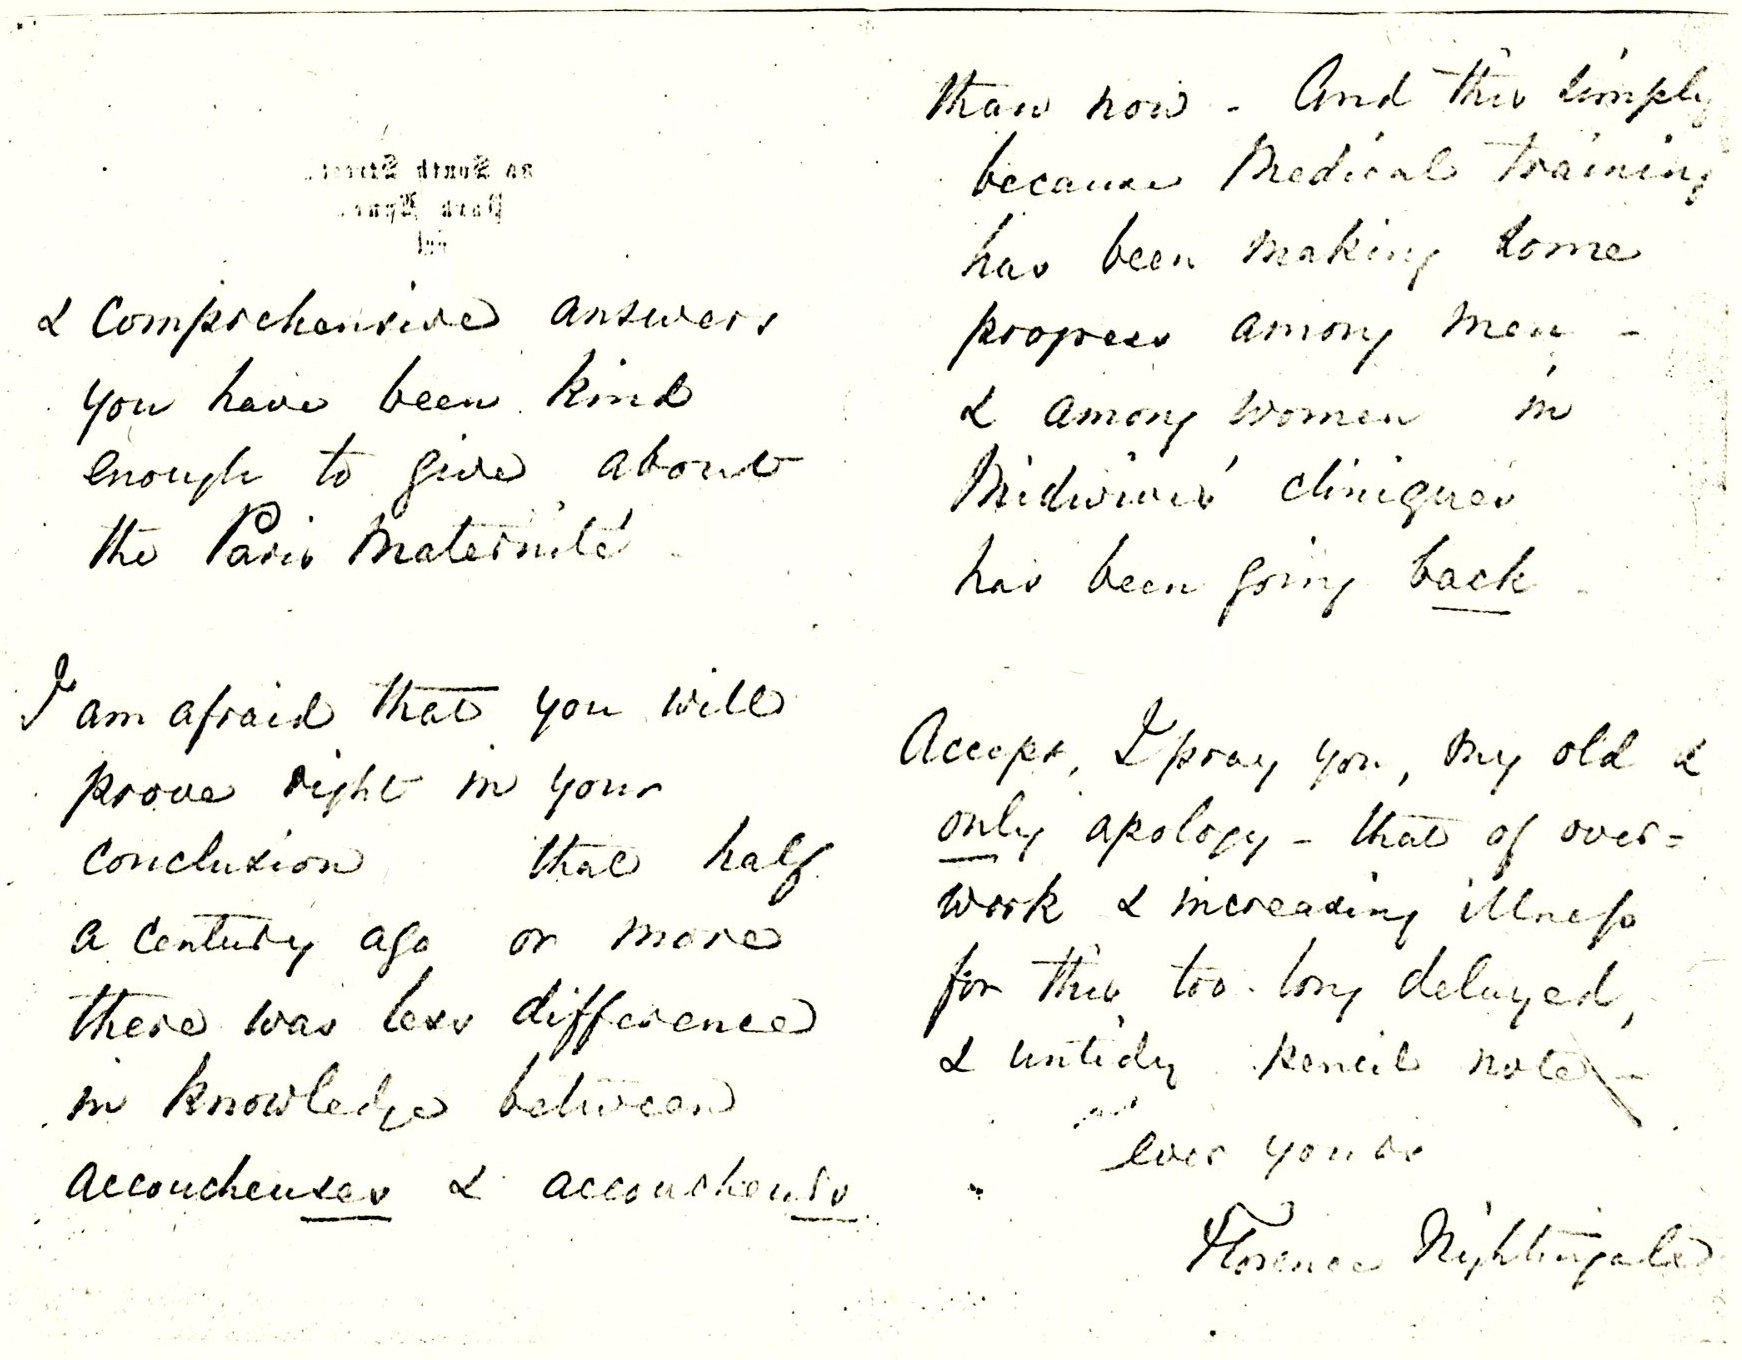 35 South Street,
Park Lane,
W.
& comprehensive answers
you have been kind
enough to give about
the Paris Maternité
I am afraid that you will
prove right in your
conclusion that half
a century ago or more
there was less difference
in knowledge between
accoucheuses & accoucheurs
than now - And this simply
because Medical training
has been making some
progress among men -
& among women in
Midwives' cliniques
has been going back -
Accept, I pray you, my old &
only apology - that of over=
work & increasing illness
for this too long delayed,
& untidy pencil note -
ever yours
Florence Nightingale